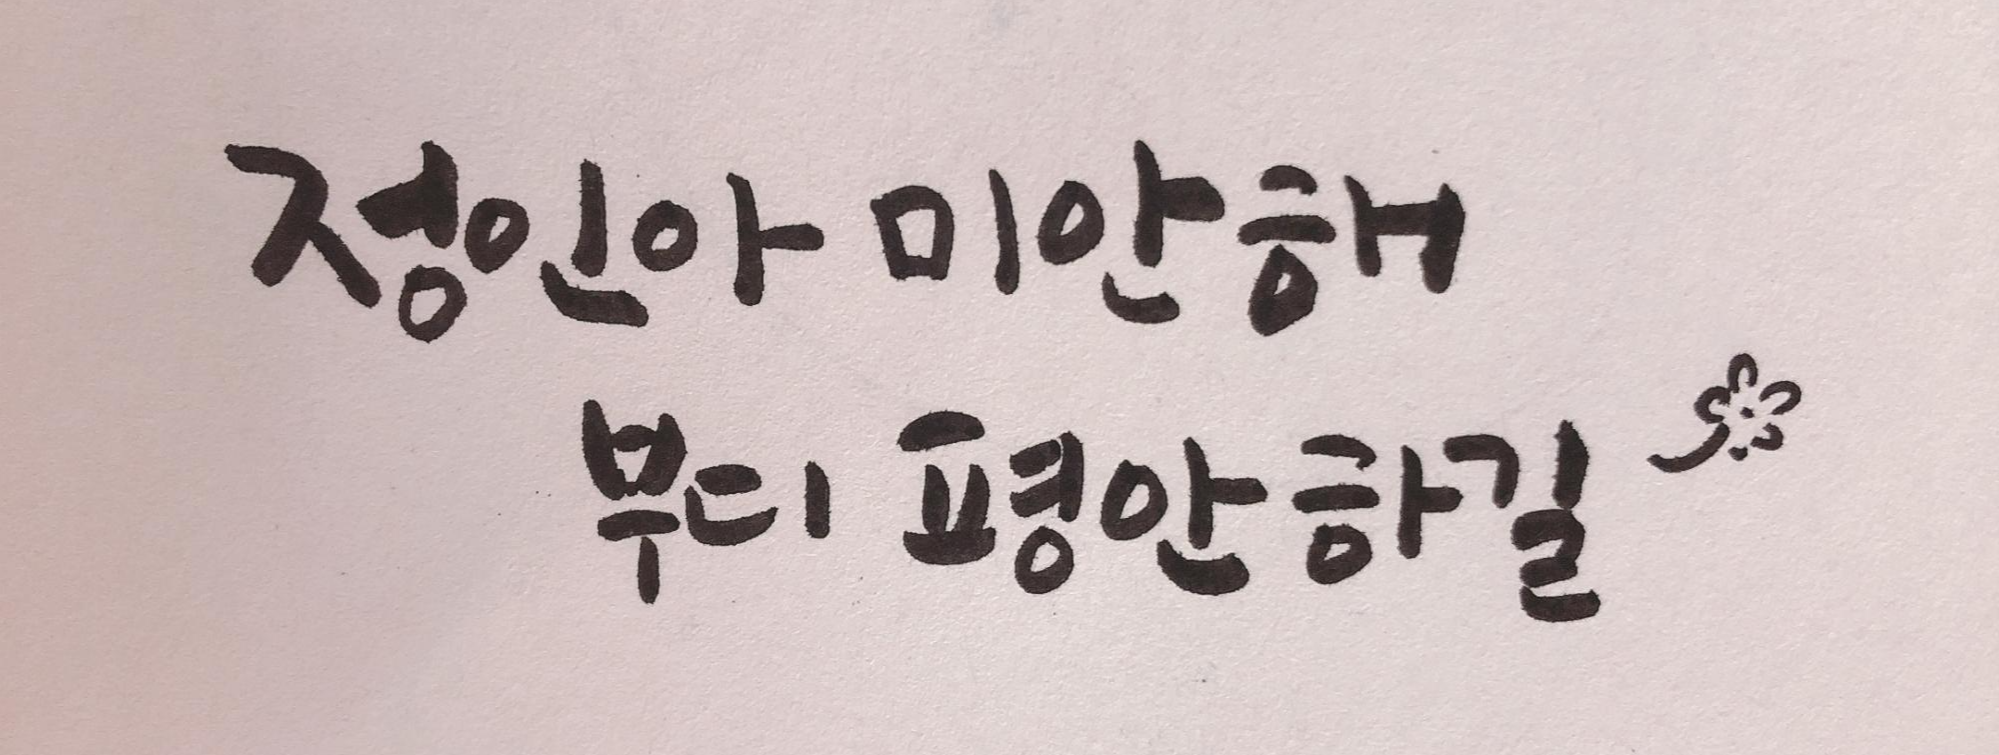 정인아 미안해
부디 평안하길